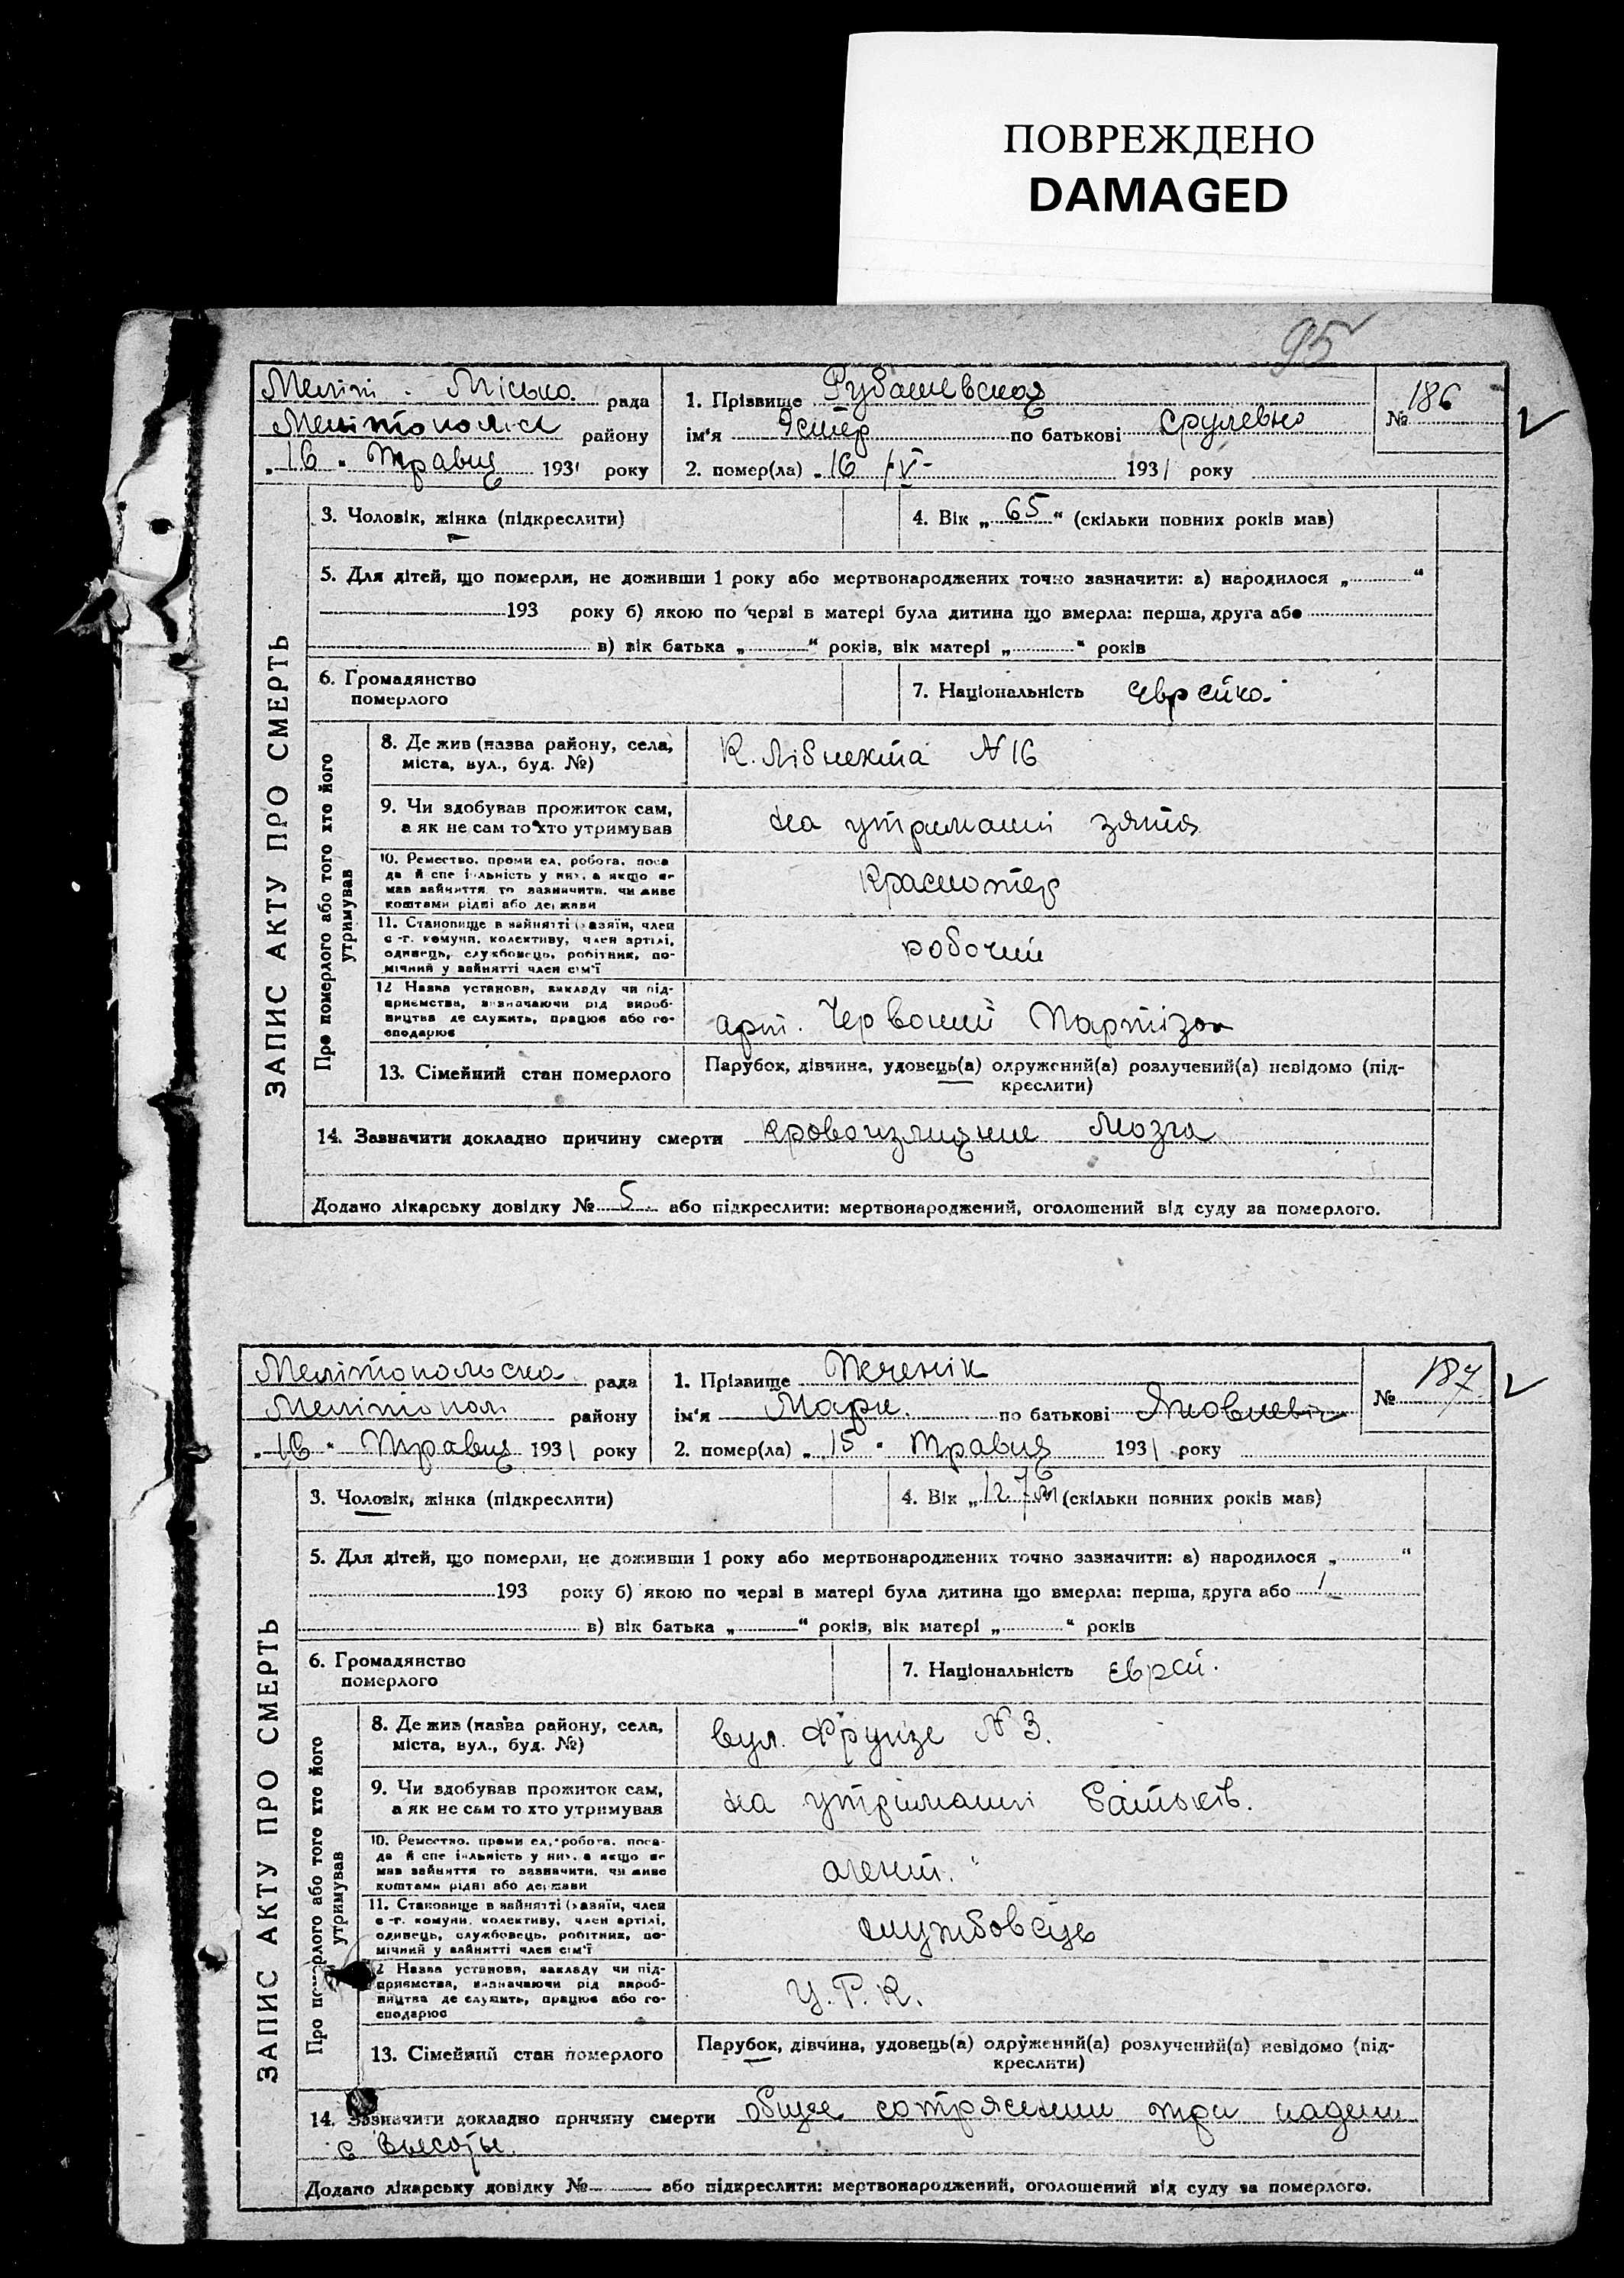 ПОВРЕЖДЕНО
DAMAGED
95
Меліт. Міська рада
Мелітопольск району
„16“ Травня 1931 року
1. Прізвище Рубашевская
ім'я Естер по батькові Срулевно
2. помер(ла) „16 /V- 1931 року
№ 186
ЗАПИС АКТУ ПРО СМЕРТЬ
3. Чоловік, жінка (підкреслити)
4. Вік „65“ (скільки повних років мав)
5. Для дітей, що померли, не доживши 1 року або мертвонароджених точно зазначити: а) народилося „ “
193 року б) якою по черзі в матері була дитина що вмерла: перша, друга або
в) вік батька „ “ років, вік матері „ “ років
6. Громадянство
померлого
7. Національність Єврейка
Про померлого або того хто його
утримував
8. Де жив (назва району, села,
міста, вул., буд. №)
К. Лібкнехта N 16
9. Чи здобував прожиток сам,
а як не сам то хто утримував
На утриманні зятя
10. Ремество, проми ел, робота, поса
да й спе іальність у них, а якщо не
мав зайняття то зазначити, чи живе
коштами рідні або держави
11. Становище в зайнятті (хазяїн, член
с-г. комуни, колективу, член артілі,
одинець, службовець, робітник, по-
мічний у зайнятті член сім'ї
робочий
12 Назва установи, закладу чи під-
приємства, визначаючи рід вироб-
ництва де служить, працює або го-
сподарює
арт. Червоний Партізан
13. Сімейний стан померлого
Парубок, дівчина, удовець(а) одружений(а) розлучений(а) невідомо (під-
креслити)
14. Зазначити докладно причину смерти кровоизлияние мозга
Додано лікарську довідку № 5 або підкреслити: мертвонароджений, оголошений від суду за померлого.
Мелітопольска рада
Мелітопол району
„16“ Травня 1931 року
1. Прізвище Печенік
ім'я Марк. по батькові Яковлевіч
2. помер(ла) „15“ Травня 1931 року
№ 187
ЗАПИС АКТУ ПРО СМЕРТЬ
3. Чоловік, жінка (підкреслити)
4. Вік „12 (скільки повних років мав)
5. Для дітей, що померли, не доживши 1 року або мертвонароджених точно зазначити: а) народилося „ “
193 року б) якою по черзі в матері була дитина що вмерла: перша, друга або 1
в) вік батька „ “ років, вік матері „ “ років
6. Громадянство
померлого
7. Національність Єврей.
Про померлого або того хто його
утримував
8. Де жив (назва району, села,
міста, вул., буд. №)
вул. Фрунзе N 3.
9. Чи здобував прожиток сам,
а як не сам то хто утримував
На утриманні батьків.
10. Ремество, проми ел, робота, поса-
да й спе іальність у них, а якщо не
мав зайняття то зазначити, чи живе
коштами рідні або держави
агент.
11. Становище в зайнятті (хазяїн, член
с-г. комуни, колективу, член артілі,
одинець, службовець, робітник, по-
мічний у зайнятті член сім'ї
службовець
12 Назва установи, закладу чи під-
приємства, визначаючи рід вироб-
ництва де служить, працює або го-
сподарює
Ц. Р. К.
13. Сімейний стан померлого
Парубок, дівчина, удовець(а) одружений(а) розлучений(а) невідомо (під-
креслити)
14. Зазначити докладно причину смерти общее сотрясении при падени
с высоты.
Додано лікарську довідку № або підкреслити: мертвонароджений, оголошений від суду за померлого.